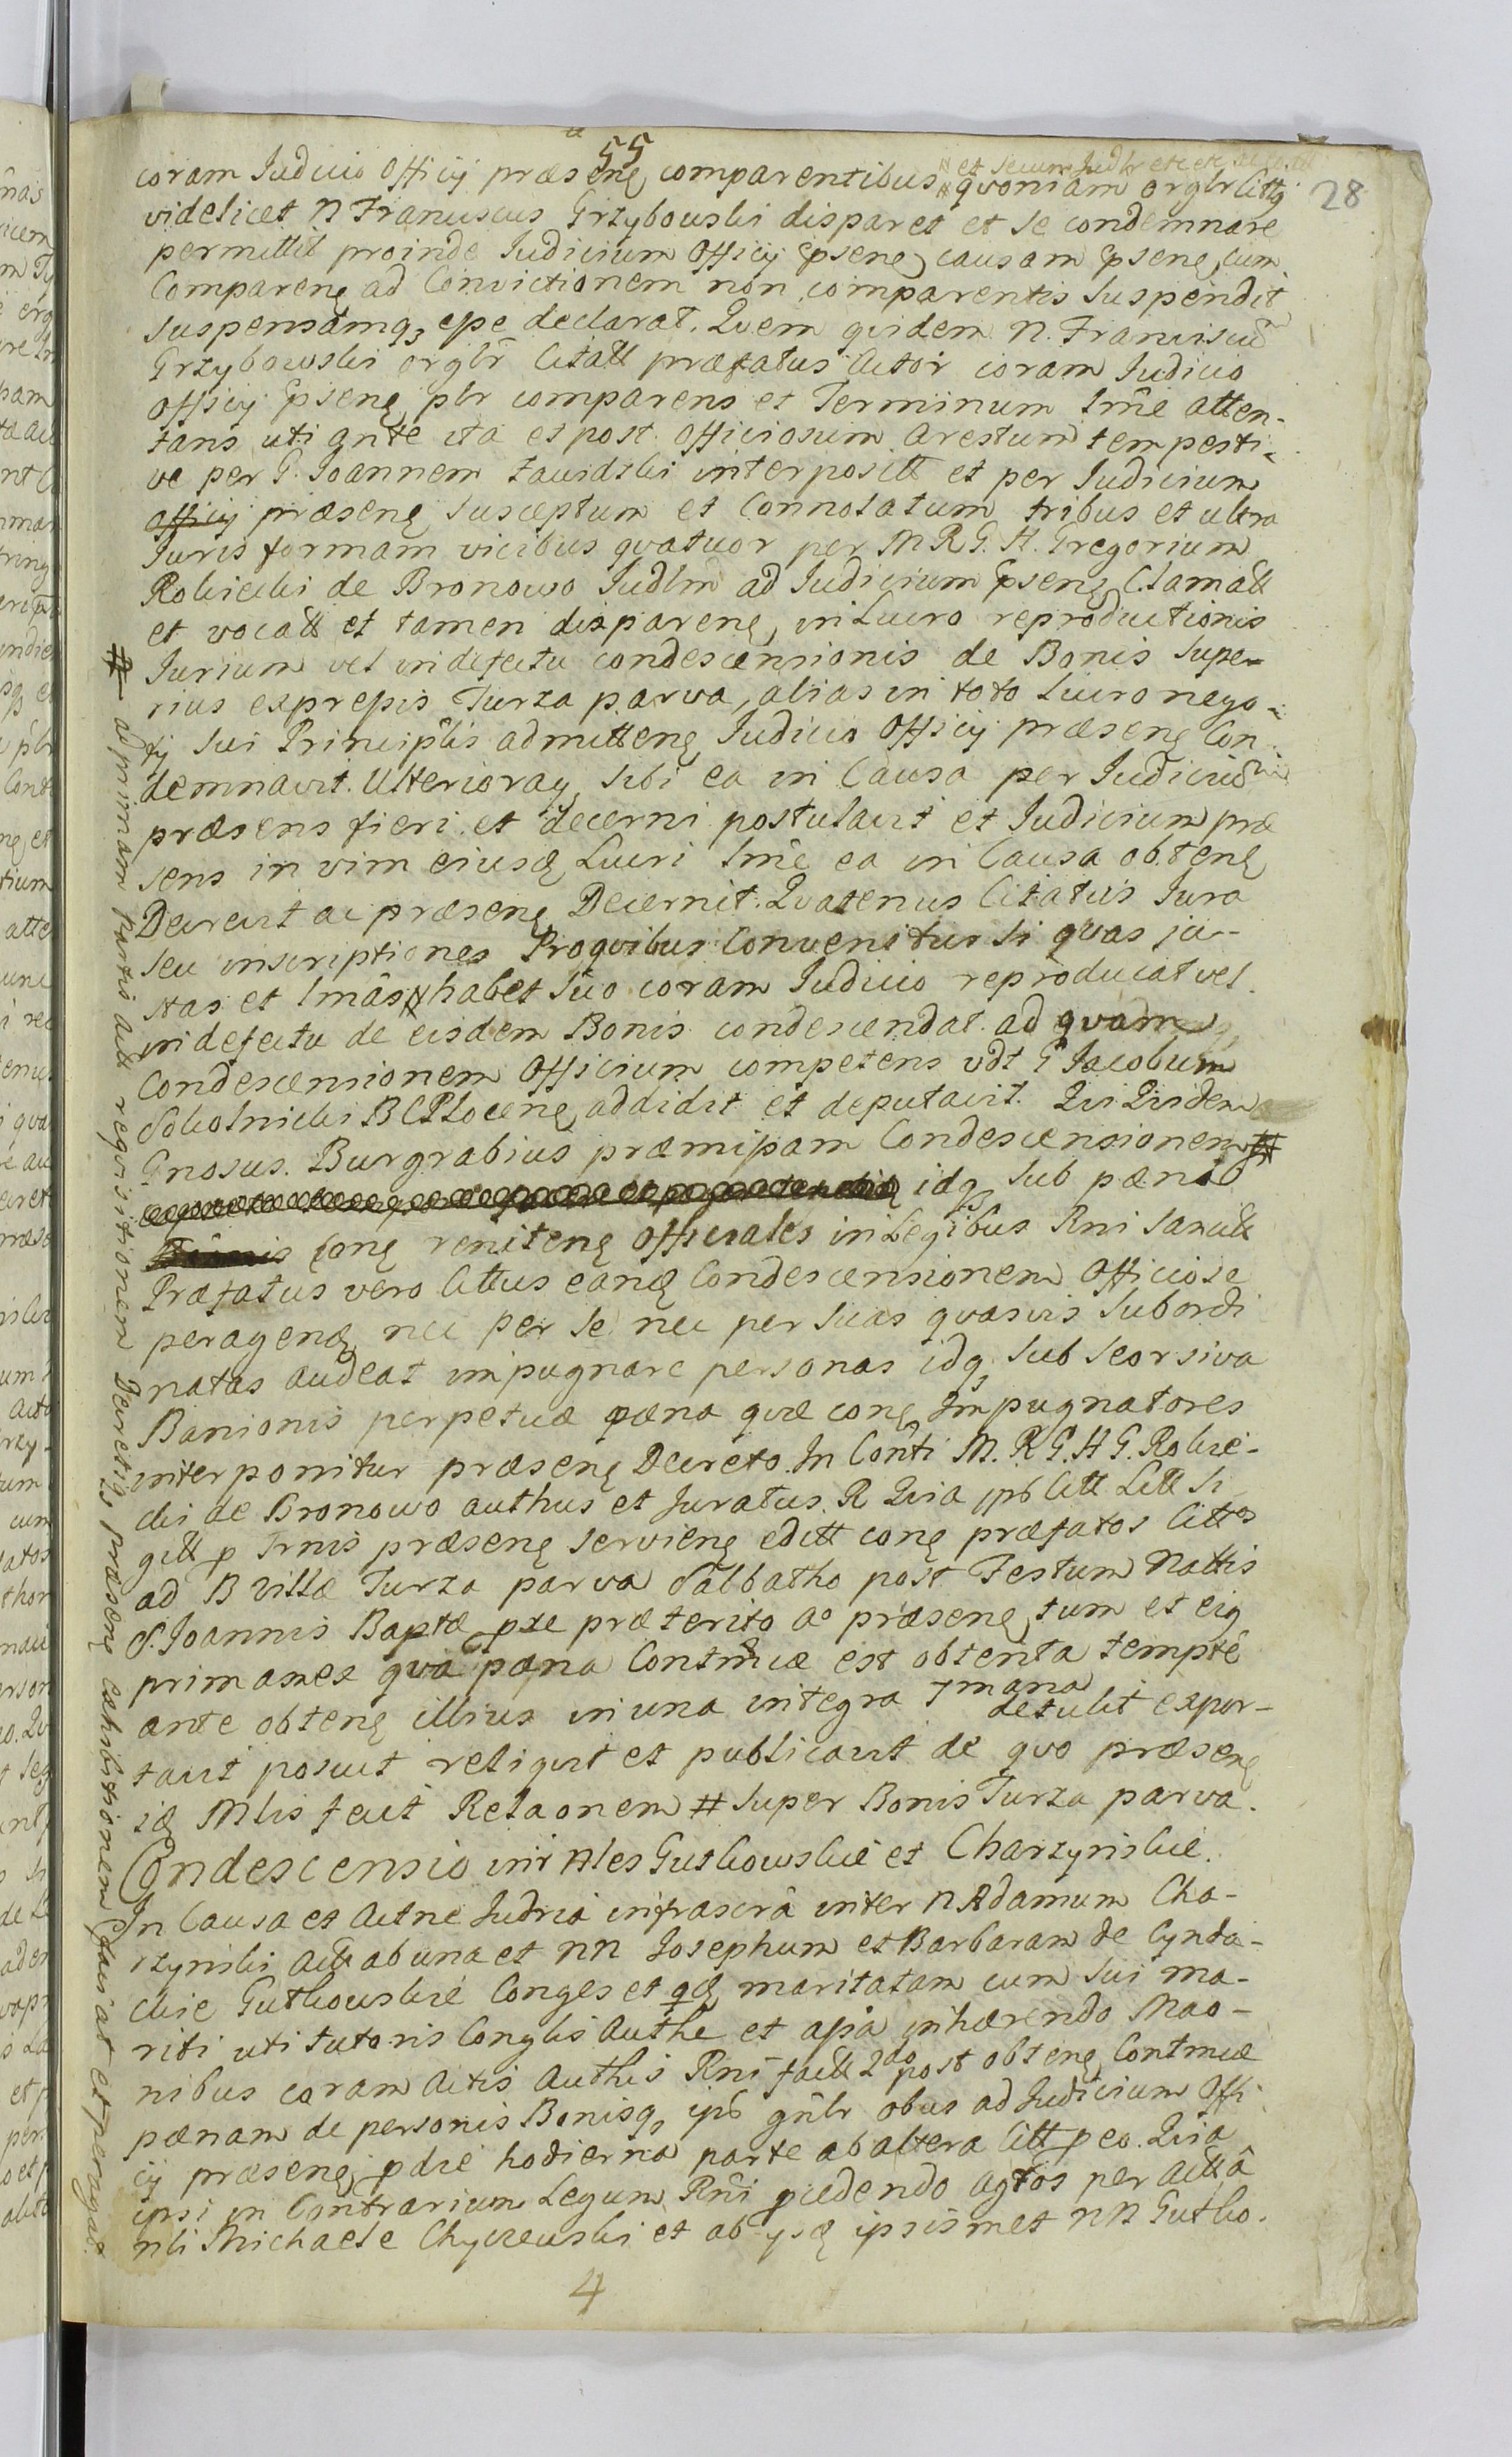 55
28
coram Iudicio Officÿ præsenę comparentibus # quoniam orglr Cittꝯ
# et secum Iudlr etc etc
videlicet N Franciscus Grzybowski disparet et se condemnare
permittit proinde Iudicium Officÿ ꝑsenę causam ꝑsenę cum
Comparenę ad Convictionem non comparentis suspendit
suspensamqꝫ eße declarat. Quem quidem N. Franciscū
Grzybowski orglr Citatt præfatus Actor coram Iudicio
Officÿ ꝑsenę plr comparens et Terminum lmē atten-
tans uti ante ita et post Officiosum Arestum tempesti-
ve per G. Ioannem interpositt et per Iudicium
Officÿ præsenę susceptum et Connotatum tribus et ultra
Iuris formam vicibus quatuor per M R G. H. Gregorium
Rokicki de Bronowo Iudlm ad Iudicium ꝑsenę Clamatt
et vocatt et tamen disparenę, in Lucro reproductionis
Iurium vel in defectu condescensionis de Bonis supe-
rius expreßis Turza parva, alias in toto Lucro nego-
tÿ sui Principlis admittenę Iudicio Officÿ præsenę Con-
demnavit. Ulterioraqꝫ sibi ea in Causa per Iudiciū
præsens fieri et decerni postulavit et Iudicium præ
sens in vim eiusdę Lucri lmē ea in Causa obtenę
Decrevit ac præsenę Decernit. Quatenus Citatus Iura
seu inscriptiones Pro quibus Convenitur si quas ju-
stas et lmās # habet suo coram Iudicio reproducat vel
in defectu de eisdem Bonis condescendat ad quam
Condescensionem Officium competens vdt G Iacobum
Sokolnicki B C Plocenę addidit et deputavit. Qui Quidem
Gnosus. Burgrabius præmißam Condescensionem #
idqꝫ sub pæna
conę renitenę Officiales in Legibus Rni sancitt
Præfatus vero Cittus eandę Condescensionem Officiose
peragendę nec per se nec per suas quasvis subordi
natas audeat impugnare personas idqꝫ sub seorsiva
Banionis perpetuæ pæna quæ conę Impugnatores
interponitur præsenę Decreto. In Conti M. R G. H G. Rokic-
cki de Bronowo authus et Iuratus R Quia ipse Citt Litt si
gill p Trnis præsenę servienę editt conę præfatos Cittos
ad B villæ Turza parva Sabbatho post Festum Nattis
S. Ioannis Baptæ pxe præterito Ao præsenę tum et eiꝯ
primaner qua pæna Contmciæ est obtenta tempte
ante obtenę illius in una integra 7mana detulit expor-
tavit posuit reliquit et publicavit de quo præsenę
idę Mlis fecit Relaonem # super Bonis Turza parva.
Condescensio intr Nles Gutkowskie et Charzynskie.
In Causa et Actne Iudria infrascrā inter N Adamum Cha-
rzynski Actt ab una et NN Iosephum et Barbaram de Cynda-
ckie Gutkowskie Conges et qdę maritatam cum sui ma-
riti uti tutoris Conglis Authe et aßa inhærendo Mao-
nibus coram Actis Authis Rni factt 2do post obtenę Contmciæ
pænam de personis Bonisqꝫ ips gnlr obus ad Iudicium Offi-
cÿ præsenę p die hodierna parte ab altera Citt p eo. Quia
ipsi in Contrarium Legum Rni pcedendo agros per Acttā
nli Michaele Chyczewski et ab ysdę ipsismet NN Gutko-
4
# ad primam partis Actt requisitionem Decretiqꝫ præsenę exhibitionem faciat et peragat.